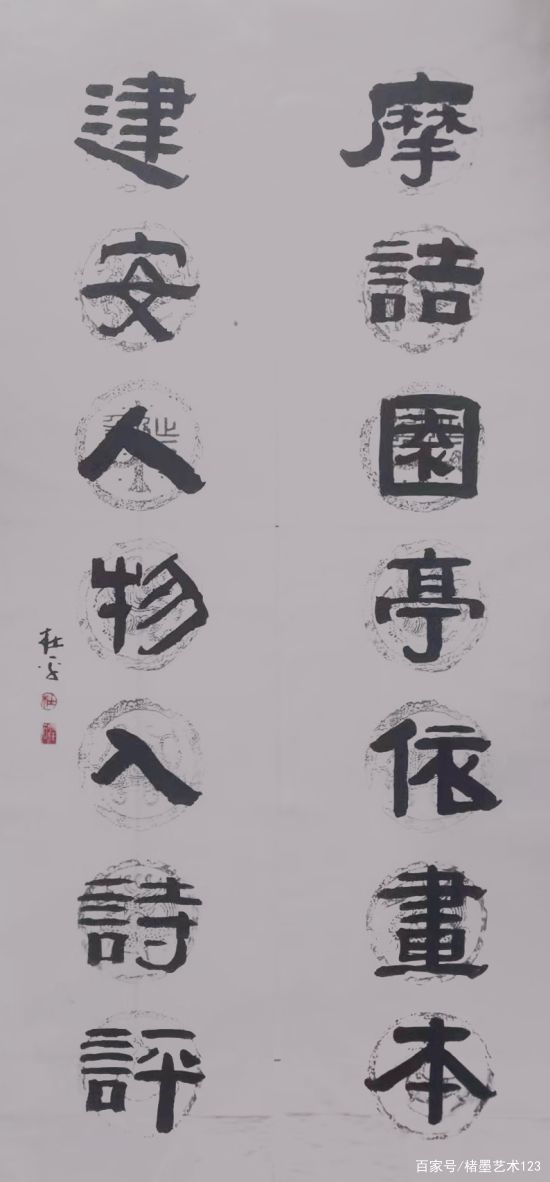 摩詰園亭依畫本
建安人物入詩評
百家号/楮墨艺术123